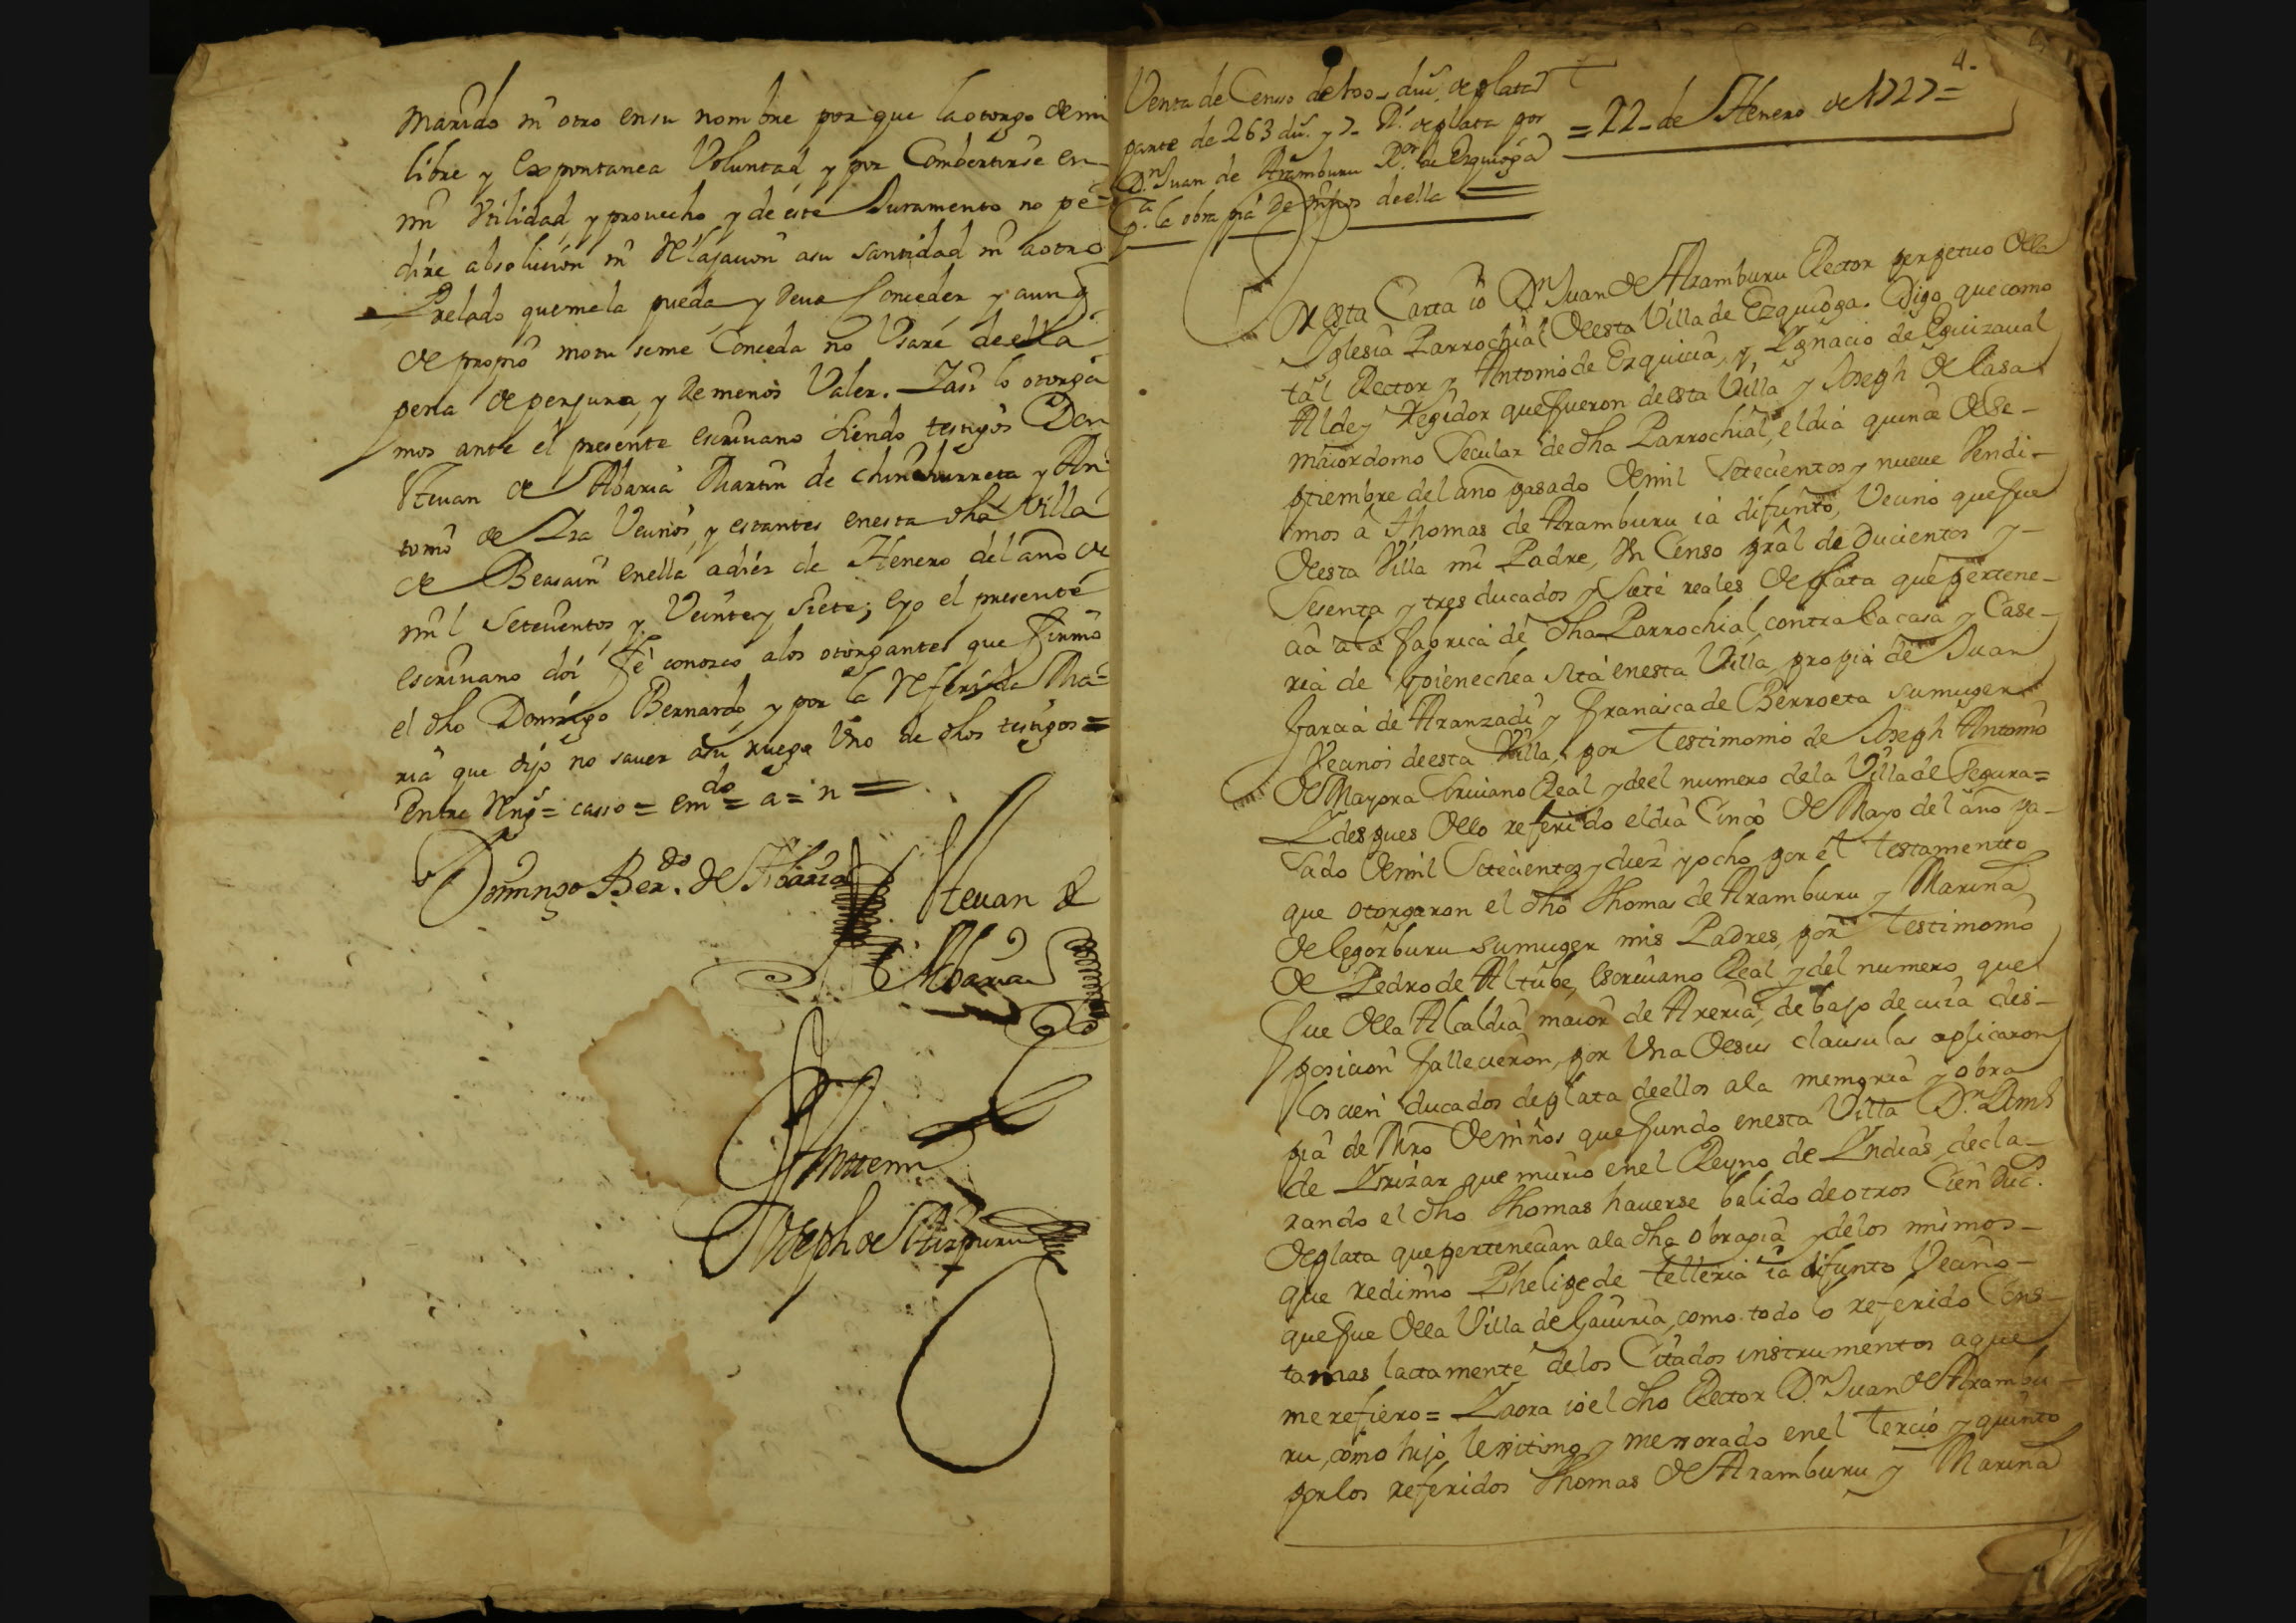 Marido ni otro en su nombre porque la otorgo de mi
libre y expontanea Voluntad y por Combertirse en
mi Utilidad, y prouecho y de este Juramento no pe-
dire absolucion ni Relajacion a su santidad ni a otro
Prelado que me la pueda y deua Conceder y aunq
de propio motu se me Conceda no Usare de ella
pena de perjura y de menos Valer. Y asi lo otorga
mos ante el presente escriuano siendo testigos Don
Steuan de Abaria Martin de chinchurreta y An
tonio de Vecinos, y estantes en esta dha Villa
de Beasain en ella a diez de Henero del año de
mil Setecientos y Veinte y siete; e yo el presente
escriuano doi fe conozco a los otorgantes que firmo
el dho Domingo Bernardo y por la Referida Ma-
ria que dijo no sauer a su ruego Uno de dhos testigos =
Entre Rengs = casso = emdo = a = n =
Domingo Berdo. de Abaria
Steuan de
Abaria
Ante mi
Joseph de Aizpuru
4.
Venta de Censo de 100 duc.s de plata
parte de 263 du.s y 7 Rs. de plata por
Dn. Juan de Aramburu Ror. de Ezquioga
Pa. la obra pia de niños de ella
= 22 de Henero de 1727 =
En esta Carta io Dn Juan de Aramburu Rector perpetuo de la
Yglesia Parrochial de esta Villa de Ezquioga. Digo que como
tal Rector y Antonio de Ezquicia, y Ygnacio de Eguizaual
Alde y Regidor que fueron de esta Villa y Joseph de Casa
maiordomo Secular de dha Parrochial, el dia quince de Se-
ptiembre del año pasado de mil Setecientos y nueue Vendi-
mos â Thomas de Aramburu ia difunto, Vecino que fue
de esta Villa mi Padre, Un Censo pral de Ducientos y
Sesenta y tres ducados y Siete reales de plata que pertene-
cia a la fabrica de dha Parrochial contra la casa y Case-
ria de Goienechea sita en esta Villa propia de Juan
Garcia de Aranzadi y Francisca de Berroeta su muger
Vecinos de esta Villa, por Testimonio de Joseph Antonio
de Mayora Scriuano Real y de el numero de la Villa de Segura =
Y despues de lo referido el dia Cinco de Mayo del año pa-
sado de mil Setecientos y diez y ocho por el Testamentto
que otorgaron el dho Thomas de Aramburu y Marina
de Legorburu su muger mis Padres, por Testimonio
de Pedro de Altube, Escriuano Real y del numero que
fue de la Alcaldia maior de Areria, de bajo de cuia dis-
posicion fallecieron, por Una de sus clausulas aplicaron
los cien ducados de plata de ellos a la memoria y obra
pia de Mro de niños que fundo en esta Villa Dn. Doms
de Yrizar que murio en el Reyno de Yndias, decla-
rando el dho Thomas hauerse balido de otros Cien Duc.
de plata que pertenecian a la dha obrapia y de los mimos
que redimio Phelipe de Telleria ia difunto Vecino
que fue de la Villa de Gauiria, como todo lo referido Cons-
ta mas lactamente de los Citados instrumentos a que
me refiero = Y aora io el dho Rector Dn. Juan de Arambu
ru, como hijo lexitimo y mejorado en el Tercio y quinto
por los referidos Thomas de Aramburu y Marina